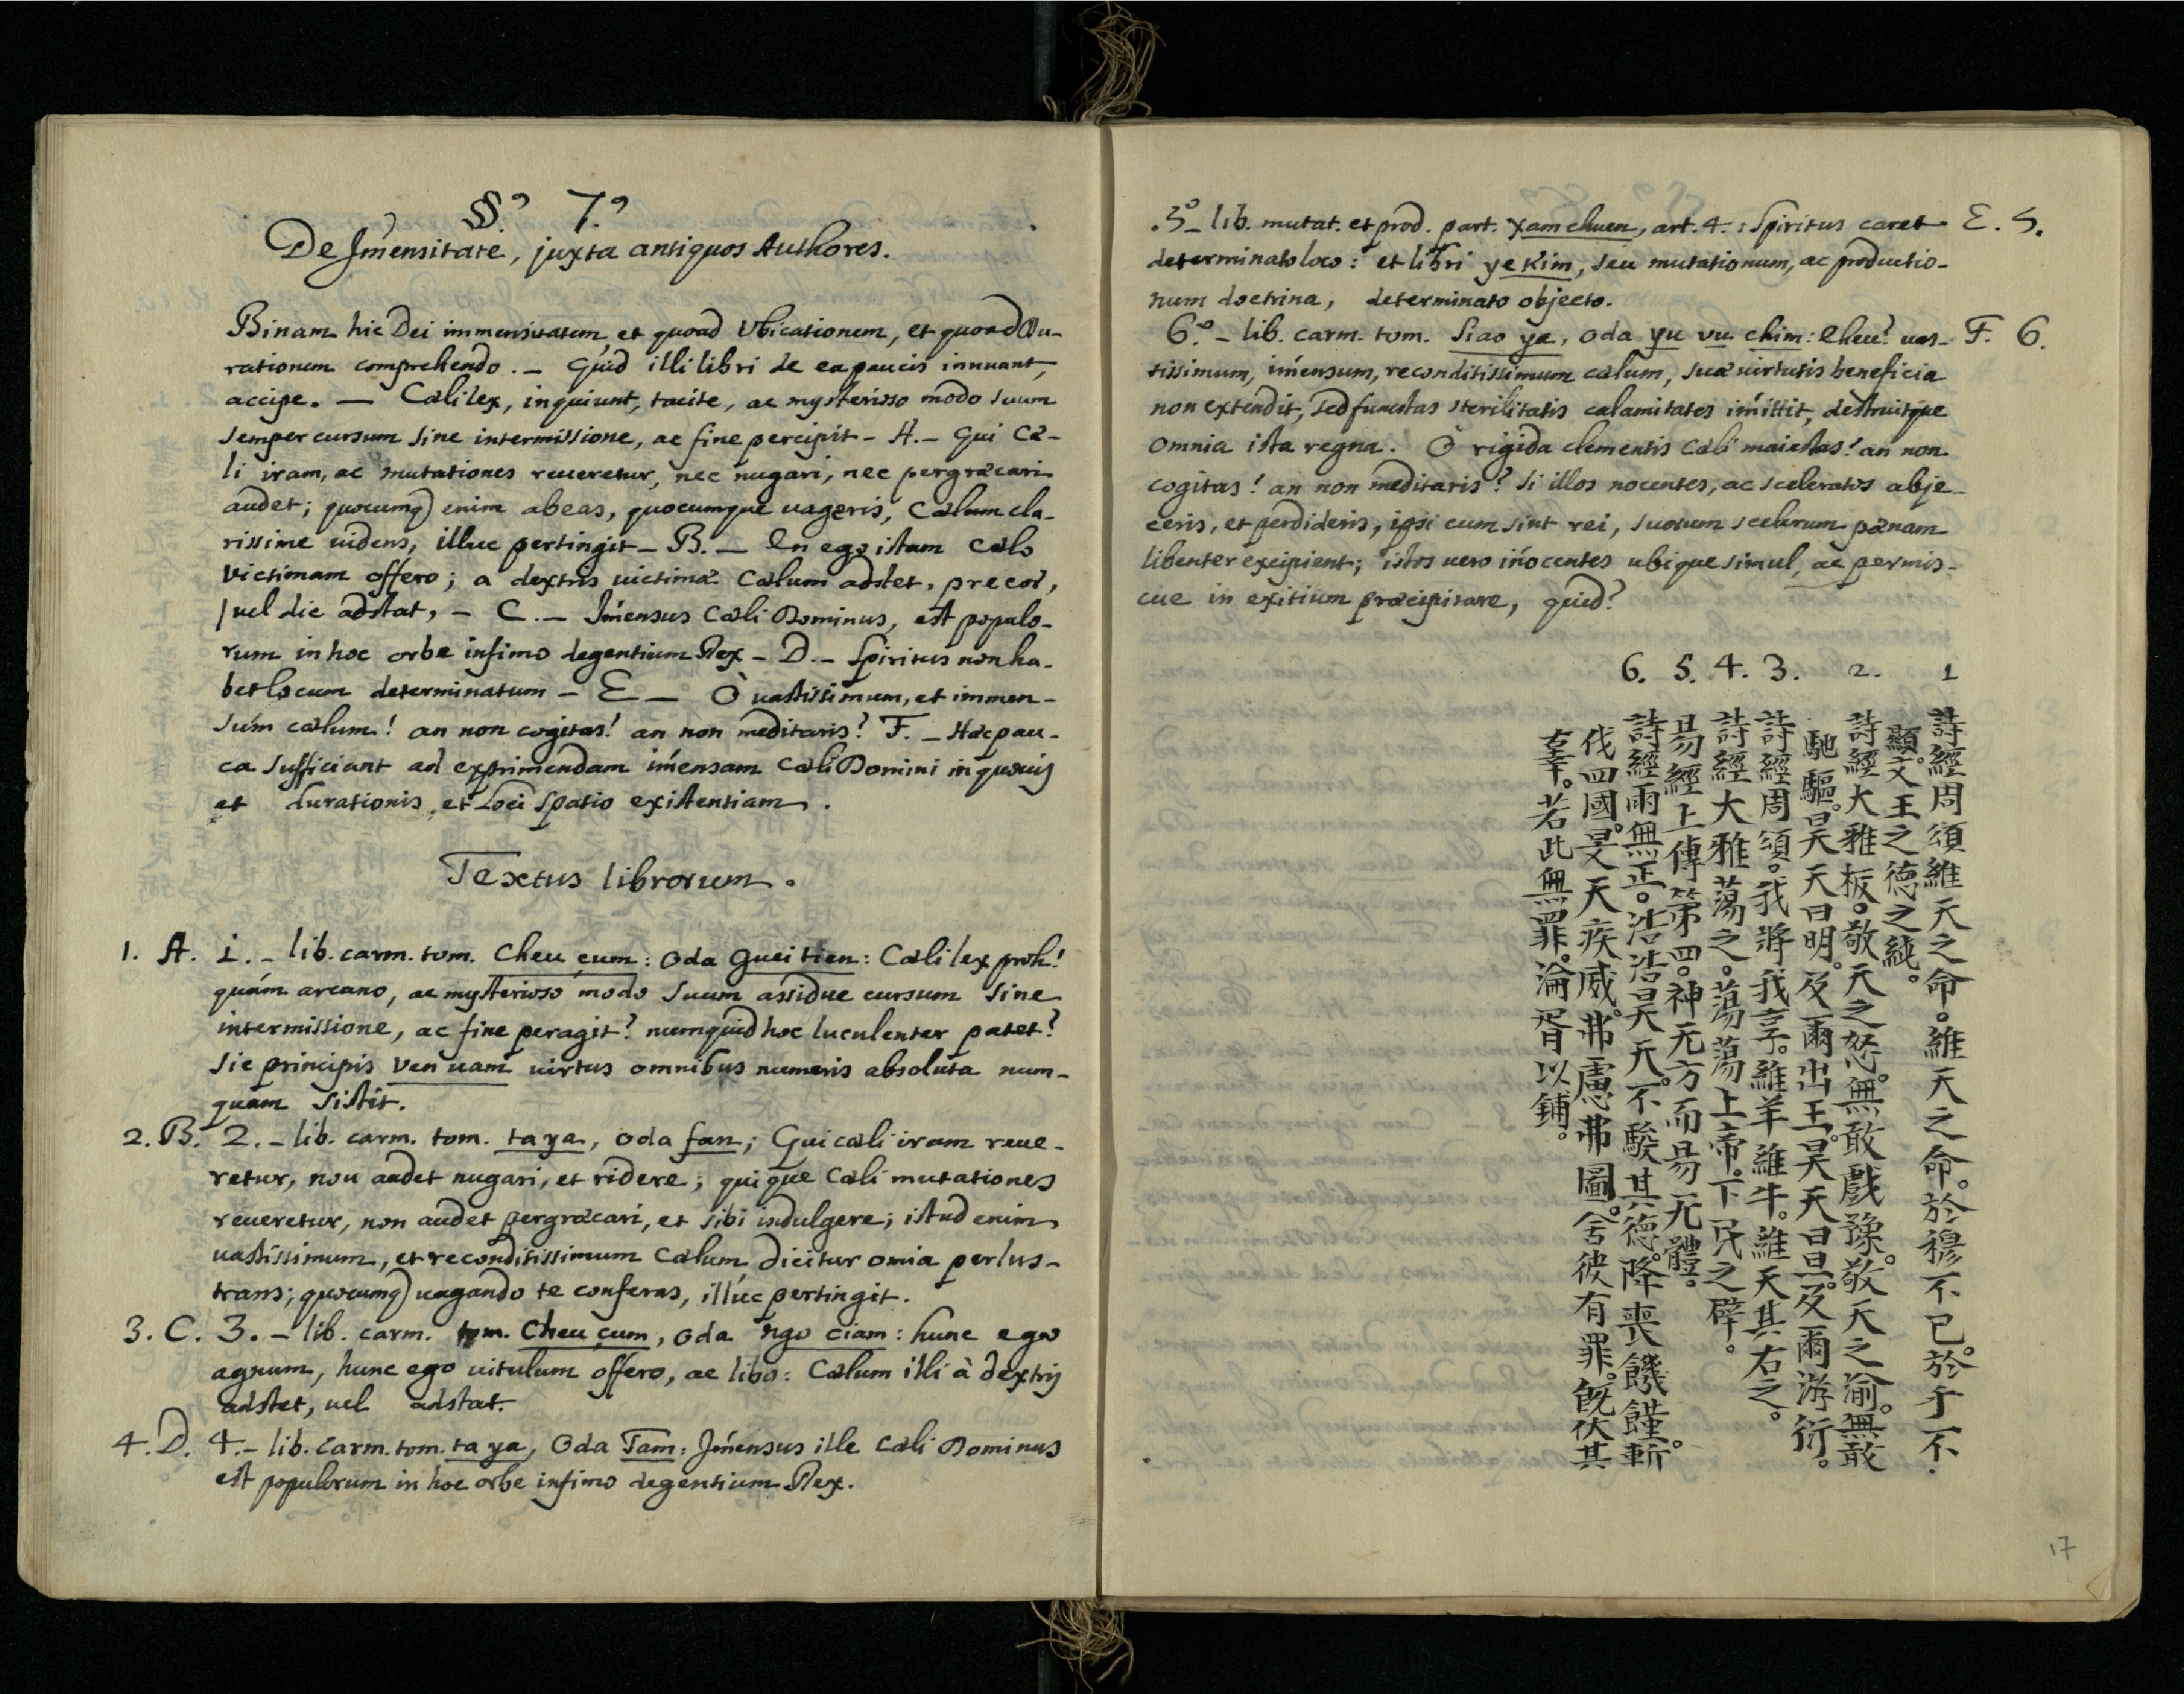 §.º 7.º
De Im̄ensitate, juxta antiquos Authores.
Binam hic Dei immensitatem, et quoad Ubicationem, et quoad Du-
rationem comprehendo. - Quid illi libri de ea paucis innuant,
accipe. — Cæli lex, inquiunt, tacite, ac mysterioso modo suum
semper cursum sine intermissione, ac fine percipit - A. - Qui Cæ-
li iram, ac mutationes reueretur, nec nugari, nec pergræcari
audet; quocumq) enim abeas, quocumque uageris, Cælum cla-
rissime uidens, illuc pertingit - B. - En ego istam Cælo
Victimam offero; a dextris uictimæ Cælum adstet, precor,
/ uel dic adstat, - C. - Im̄ensus Cæli Dominus, est populo-
rum in hoc orbe infimo degentium Rex - D. - Spiritus non ha-
bet locum determinatum - E — Ò uastissimum, et immen-
sum cælum! an non cogitas! an non meditaris? F. - Hæc pau-
ca sufficiant ad exprimendam im̄ensam Cæli Domini in quouis
et durationis, et loci spatio existentiam.
Textus librorum.
1. A. 1. - lib. carm. tom. Cheu çum: Oda Guei tien: Cæli lex proh!
quám arcano, ac mysterioso modo suum assidue cursum sine
intermissione, ac fine peragit? numquid hoc luculenter patet?
sic principis Ven uam uirtus omnibus numeris absoluta num-
quam sistit.
2. B. 2. - lib. carm. tom. ta ya, Oda fan; Qui cæli iram reue-
retur, non audet nugari, et ridere; quique Cæli mutationes
reueretur, non audet pergræcari, et sibi indulgere; istud enim
uastissimum, et reconditissimum Cælum dicitur omia perlus-
trans; quocumq) uagando te conferas, illúc pertingit.
3. C. 3. - lib. carm. tom. Cheu çum, Oda ngo ciam: hunc ego
agnum, hunc ego uitulum offero, ac libo: Cælum illi à dextris
adstet, uel adstat.
4. D. 4. - lib. carm. tom. ta ya, Oda Tam: Im̄ensus ille Cæli Dominus
est populorum in hoc orbe infimo degentium Rex.
.5º - lib. mutat. et prod. part. Xam chuen, art. 4. : Spiritus caret E. 5.
determinato loco: et libri ye Kim, seu mutationum, ac productio-
num doctrina, determinato objecto.
6.º - lib. carm. tom. Siao ya, Oda yu vu chim: Eheu? uas- F. 6.
tissimum, im̄ensum, reconditissimum cælum, suæ uirtutis beneficia
non extendit, sed funestas sterilitatis calamitates im̄ittit, destruitque
omnia ista regna. Ò rigida clementis Cæli maiestas! an non
cogitas! an non meditaris? Si illos nocentes, ac sceleratos abje-
ceris, et perdideris, ipsi cum sint rei, suorum scelerum pænam
libenter excipient; istos uero in̄ocentes ubique simul, ac permis-
cue in exitium præcipitare, quid?
6. 5. 4. 3. 2. 1
詩經周頌維天之命。維天之命。於穆不已。於乎不
顯。文王之德之純。
詩經大雅板。敬天之怒。無敢戲豫。敬天之渝。無敢
馳驅。昊天曰明。及爾出王。昊天曰旦。及爾游衍。
詩經周頌。我將我享。維羊維牛。維天其右之。
詩經大雅蕩之。蕩蕩上帝。下民之辟。
易經上傳第四。神无方而易无體。
詩經雨無正。浩浩昊天。不駿其德。降喪饑饉。斬
伐四國。旻天疾威。弗慮弗圖。舍彼有罪。既伏其
辜。若此無罪。淪胥以鋪。
17